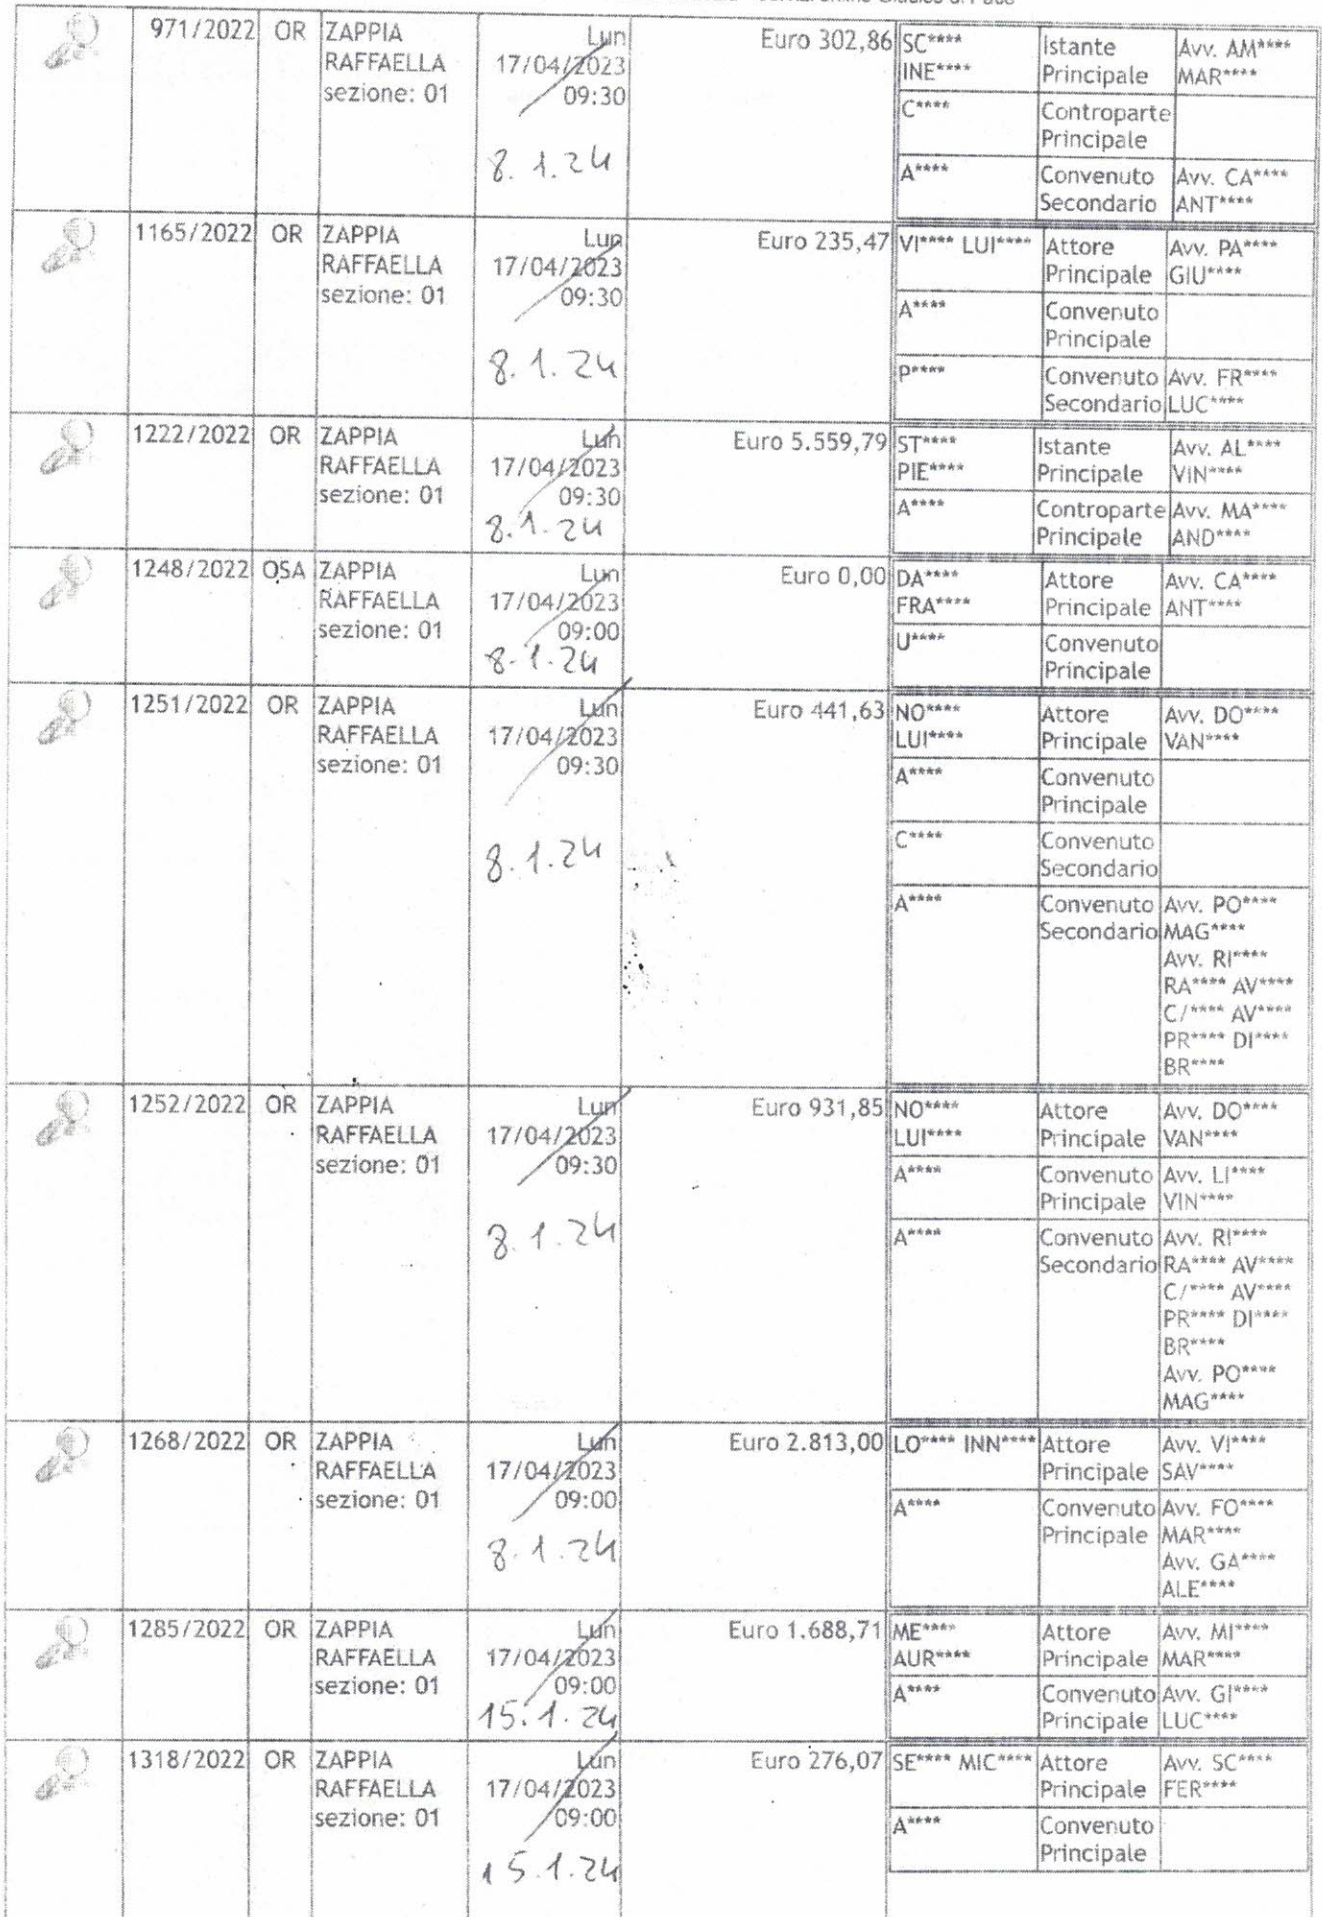 971/2022 OR ZAPPIA RAFFAELLA sezione: 01 Lun 17/04/2023 09:30 8.1.24 Euro 302,86
SC**** INE**** Istante Principale Avv. AM**** MAR****
C**** Controparte Principale
A**** Convenuto Secondario Avv. CA**** ANT****
1165/2022 OR ZAPPIA RAFFAELLA sezione: 01 Lun 17/04/2023 09:30 8.1.24 Euro 235,47
VI**** LUI**** Attore Principale Avv. PA**** GIU****
A**** Convenuto Principale
P**** Convenuto Secondario Avv. FR**** LUC****
1222/2022 OR ZAPPIA RAFFAELLA sezione: 01 Lun 17/04/2023 09:30 8.1.24 Euro 5.559,79
ST**** PIE**** Istante Principale Avv. AL**** VIN****
A**** Controparte Principale Avv. MA**** AND****
1248/2022 OSA ZAPPIA RAFFAELLA sezione: 01 Lun 17/04/2023 09:00 8.1.24 Euro 0,00
DA**** FRA**** Attore Principale Avv. CA**** ANT****
U**** Convenuto Principale
1251/2022 OR ZAPPIA RAFFAELLA sezione: 01 Lun 17/04/2023 09:30 8.1.24 Euro 441,63
NO**** LUI**** Attore Principale Avv. DO**** VAN****
A**** Convenuto Principale
C**** Convenuto Secondario
A**** Convenuto Secondario Avv. PO**** MAG**** Avv. RI**** RA**** AV**** C/**** AV**** PR**** DI**** BR****
1252/2022 OR ZAPPIA RAFFAELLA sezione: 01 Lun 17/04/2023 09:30 8.1.24 Euro 931,85
NO**** LUI**** Attore Principale Avv. DO**** VAN****
A**** Convenuto Principale Avv. LI**** VIN****
A**** Convenuto Secondario Avv. RI**** RA**** AV**** C/**** AV**** PR**** DI**** BR**** Avv. PO**** MAG****
1268/2022 OR ZAPPIA RAFFAELLA sezione: 01 Lun 17/04/2023 09:00 8.1.24 Euro 2.813,00
LO**** INN**** Attore Principale Avv. VI**** SAV****
A**** Convenuto Principale Avv. FO**** MAR**** Avv. GA**** ALE****
1285/2022 OR ZAPPIA RAFFAELLA sezione: 01 Lun 17/04/2023 09:00 15.1.24 Euro 1.688,71
ME**** AUR**** Attore Principale Avv. MI**** MAR****
A**** Convenuto Principale Avv. GI**** LUC****
1318/2022 OR ZAPPIA RAFFAELLA sezione: 01 Lun 17/04/2023 09:00 15.1.24 Euro 276,07
SE**** MIC**** Attore Principale Avv. SC**** FER****
A**** Convenuto Principale